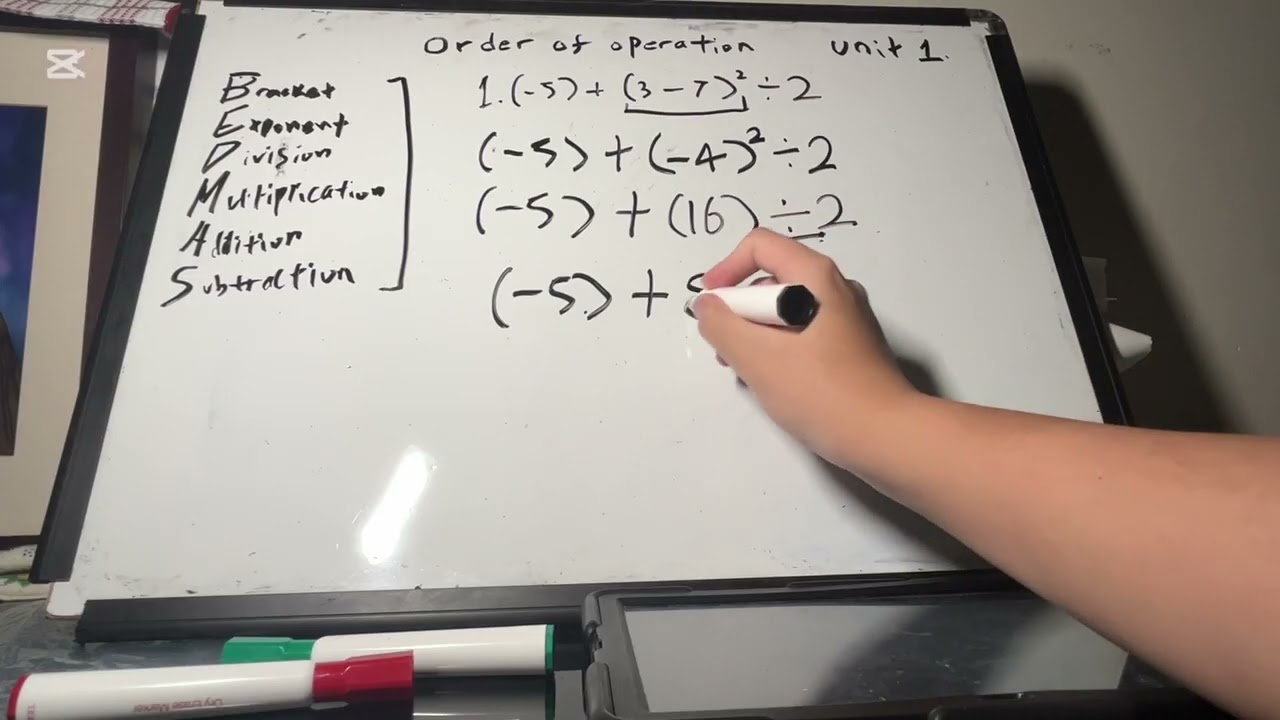 Order of operation Unit 1.
Bracket
Exponent
Division
Multiplication
Addition
Subtraction
1. (-5) + (3 - 7)² ÷ 2
(-5) + (-4)² ÷ 2
(-5) + (16) ÷ 2
(-5) +
Dry Erase Marker